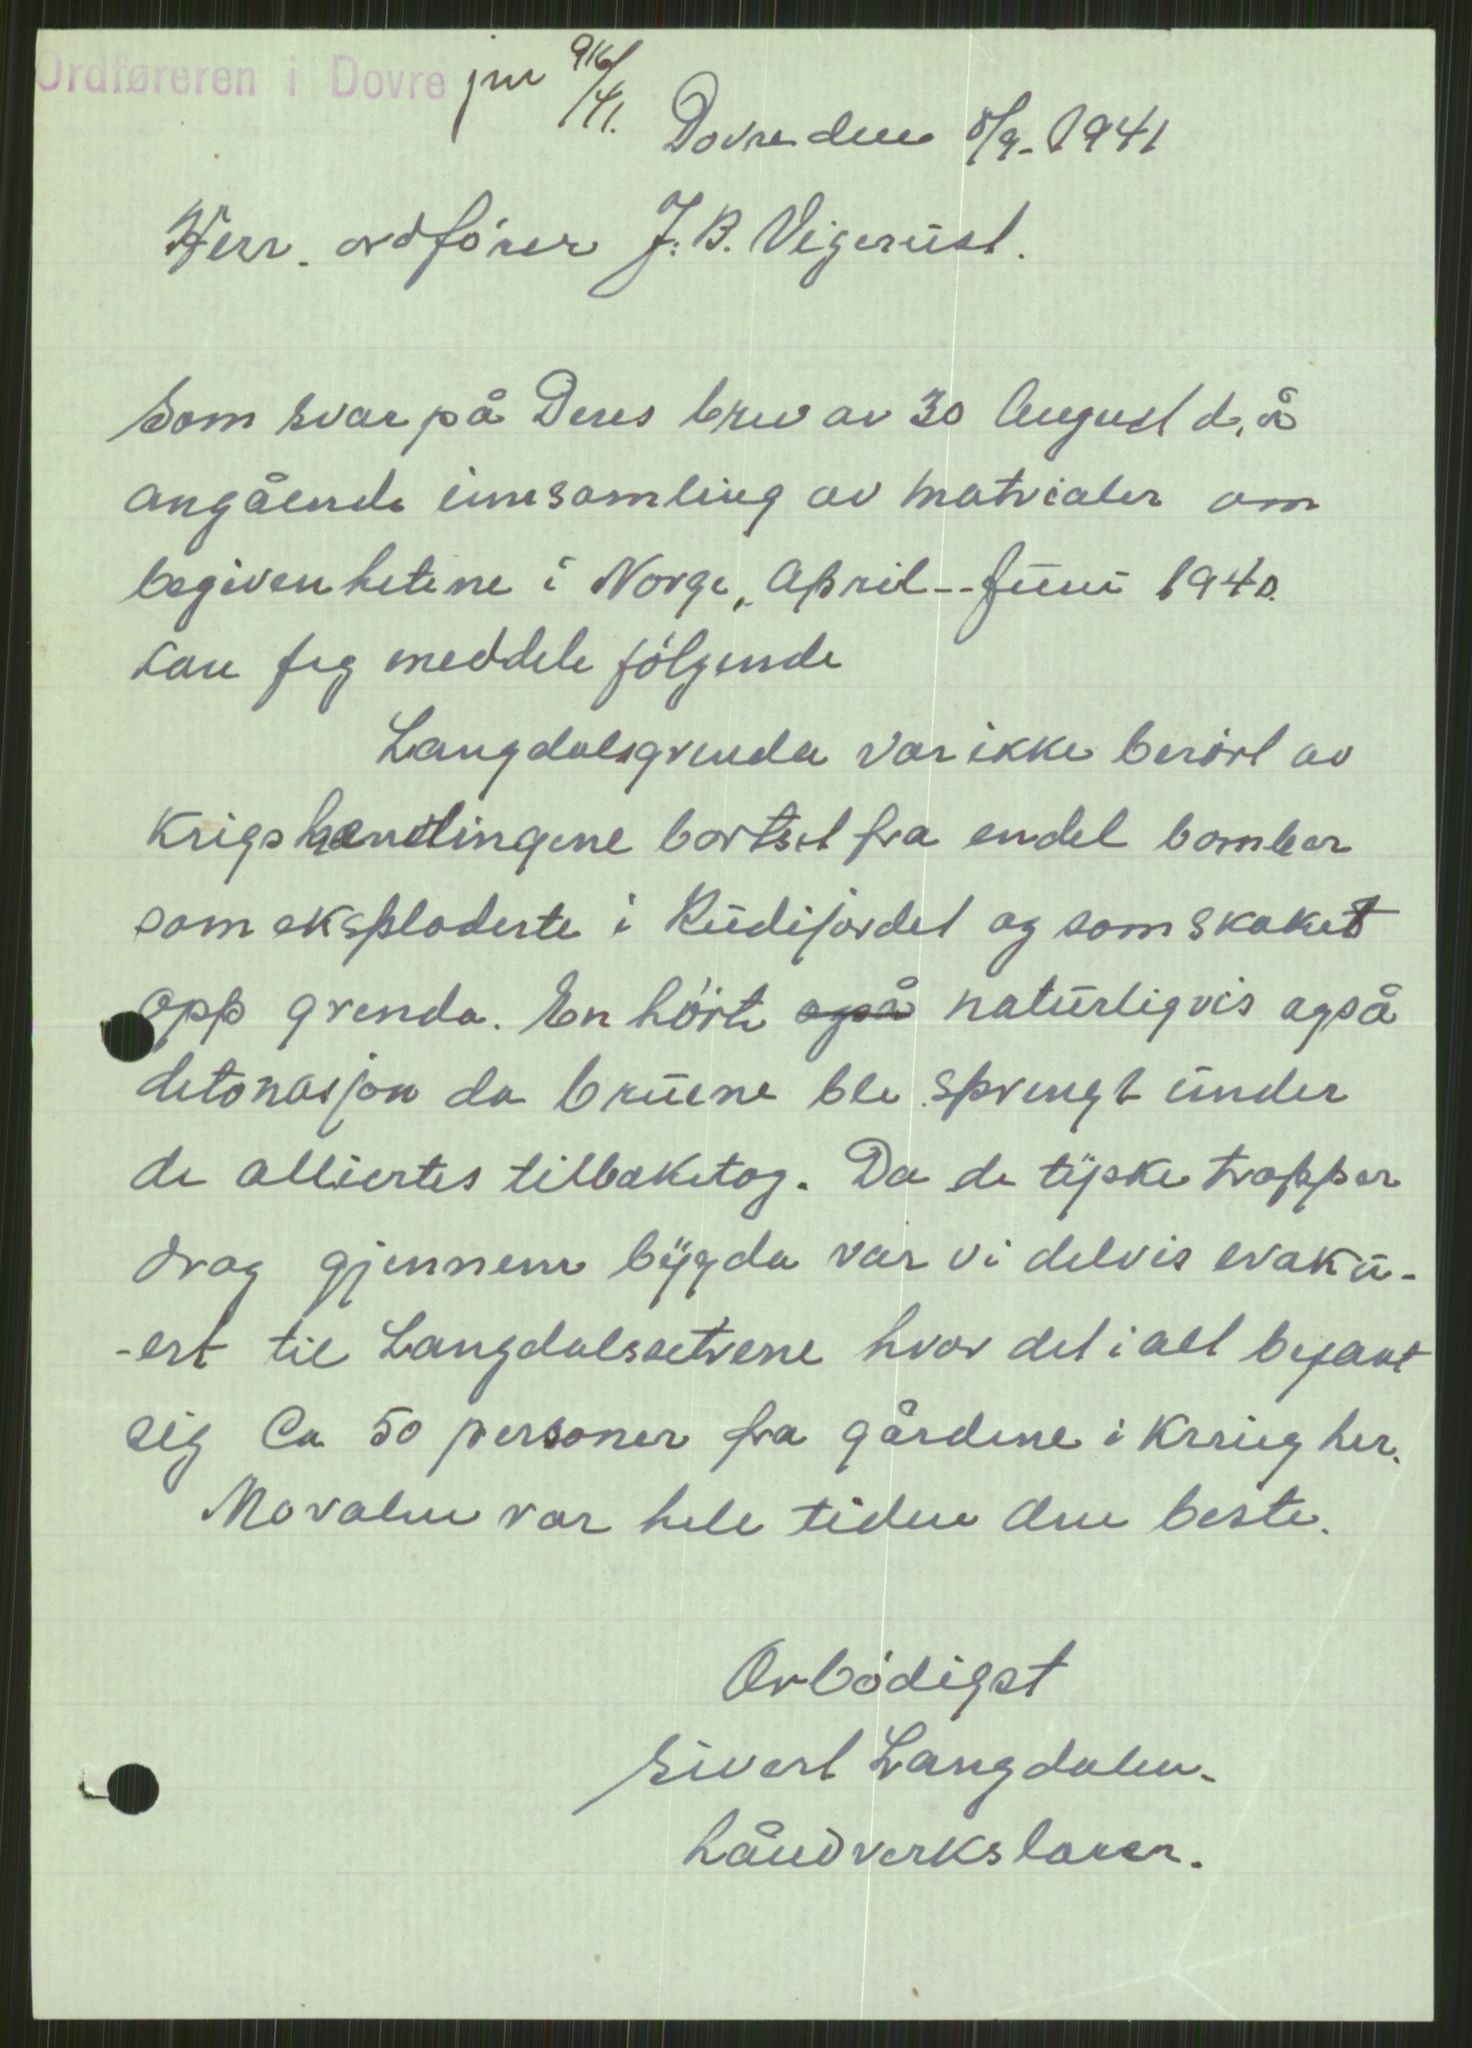 Ordføreren i Dovre jnr 916/41.
Dovre den 5/9-1941
Herr. ordfører J. B. Vigerust.
Som svar på Deres brev av 30 August d.å
angående innsamling av matrialer om
begivenhetene i Norge, April--Juni 1940.
kan jeg meddele følgende
Langdalsgrenda var ikke berørt av
Krigshandlingene bortset fra endel bomber
som eksploderte i Rudijordet og som skaket
opp grenda. En hørte også naturligvis også
detonasjon da bruene ble sprengt under
de alliertes tilbaketog. Da de tyske tropper
drog gjennem bygda var vi delvis evaku-
-ert til Langdalssetrene hvor det i alt befant
sig Ca 50 personer fra gårdene i Kring her.
Moralen var hele tiden den beste.
Ærbødigst
Sivert Langdalen.
håndverkslærer.